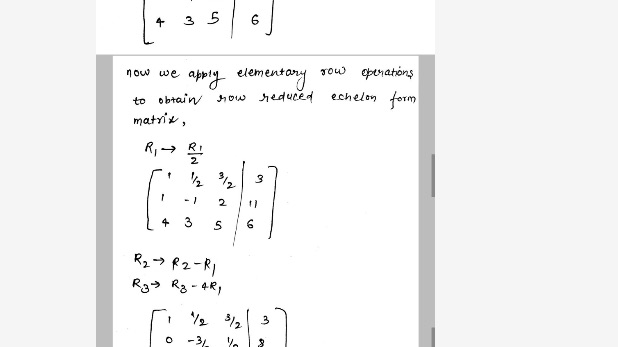 4 3 5 | 6
now we apply elementary row operations
to obtain row reduced echelon form
matrix,
R₁ → R₁/2
1 1/2 3/2 | 3
1 -1 2 | 11
4 3 5 | 6
R₂ → R₂-R₁
R₃ → R₃-4R₁
1 1/2 3/2 | 3
0 -3/2 1/2 | 8